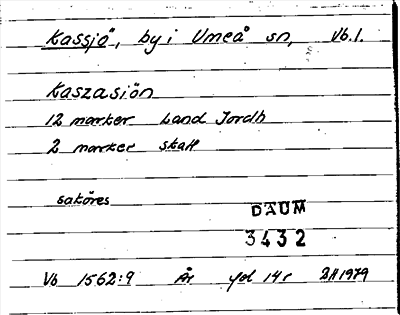 Kassjö, by i Umeå sn, Vb.l.
Kaszasiön
12 marker Land Jordh
2 marker skatt
saköres
DAUM
3432
Vb 1562:9 År yd 14r 1979